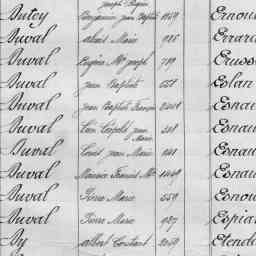 Joseph Eugène
Dutey Benjamin Jean Baptiste 1059 Ernou
Duval Albert Marie 985 Errar
Duval Eugène Mie Joseph 789 Erus
Duval Jean Baptiste 658 Eslan
Duval Jean Baptiste François Esnau
Duval Léon Léopold Jean Marie Esnau
Duval Louis Jean Marie Esnau
Duval Maurice Francis Mie 1449 Esnau
Duval Pierre Marie 559 Esnou
Duval Pierre Marie 987 Espia
Dy Albert Constant 2059 Etend